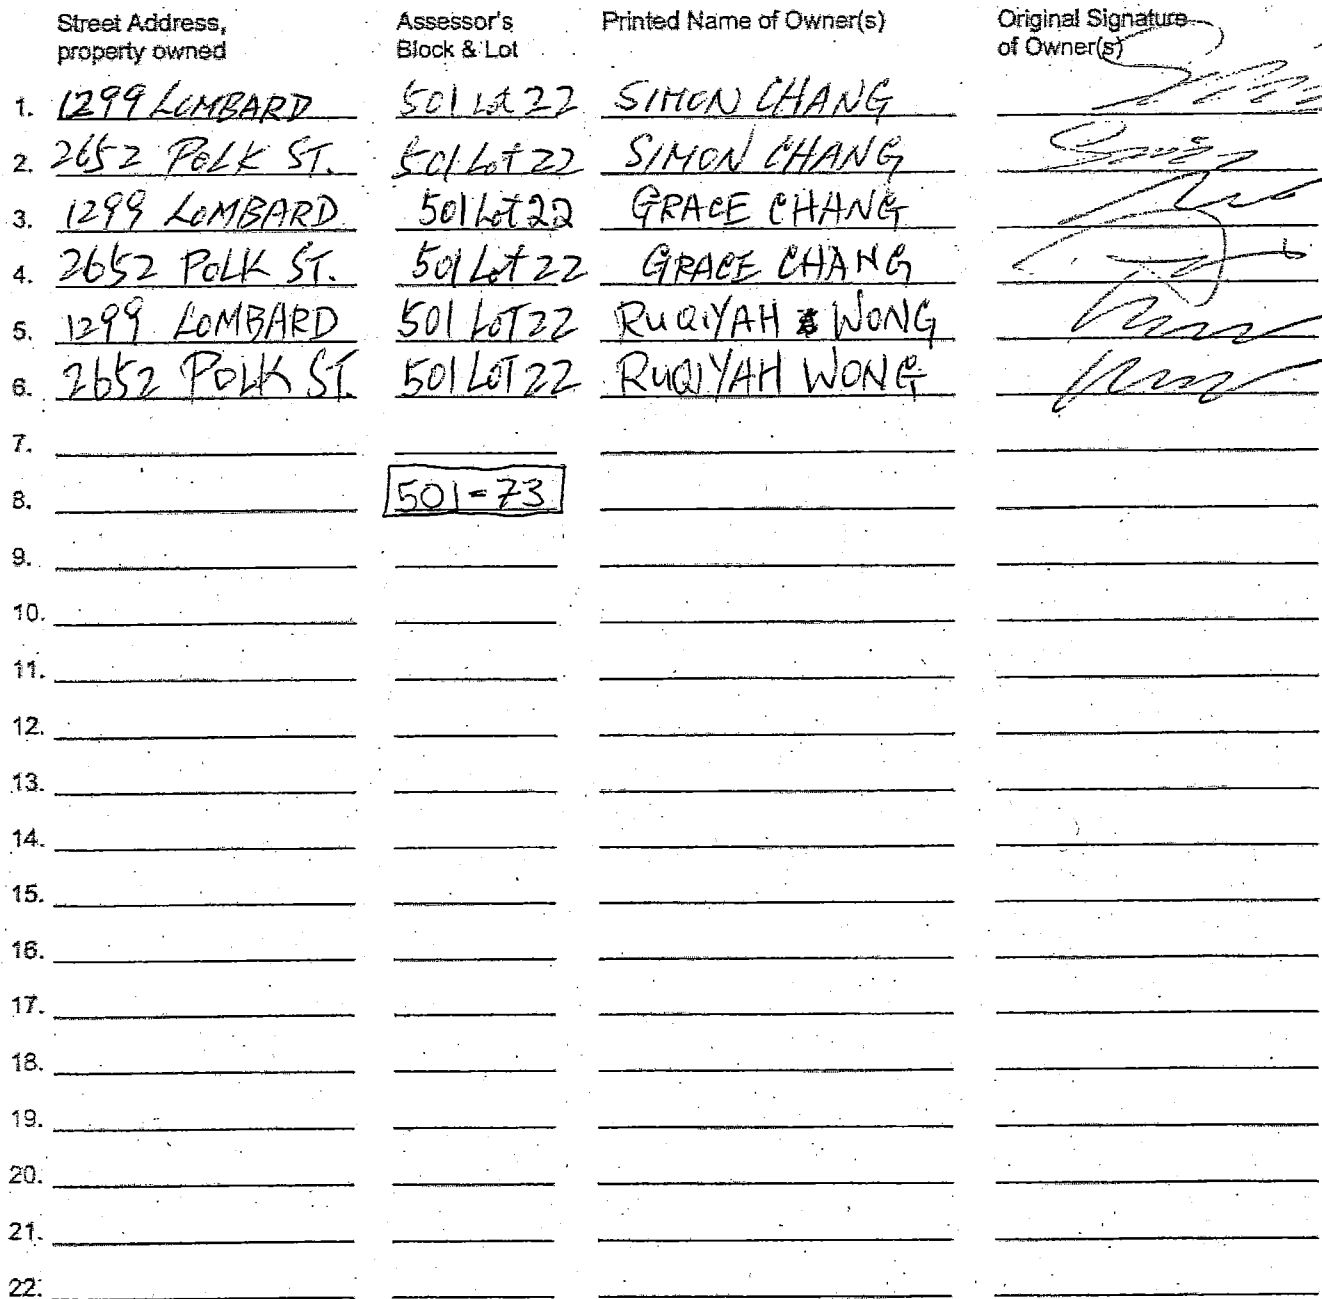 Street Address, property owned Assessor's Block & Lot Printed Name of Owner(s) Original Signature of Owner(s)
1. 1299 LOMBARD 501 Lot 22 SIMON CHANG
2. 2652 POLK ST. 501 Lot 22 SIMON CHANG
3. 1299 LOMBARD 501 Lot 22 GRACE CHANG
4. 2652 POLK ST. 501 Lot 22 GRACE CHANG
5. 1299 LOMBARD 501 LOT 22 RUQIYAH WONG
6. 2652 POLK ST. 501 LOT 22 RUQIYAH WONG
7.
8. 501-73
9.
10.
11.
12.
13.
14.
15.
16.
17.
18.
19.
20.
21.
22.